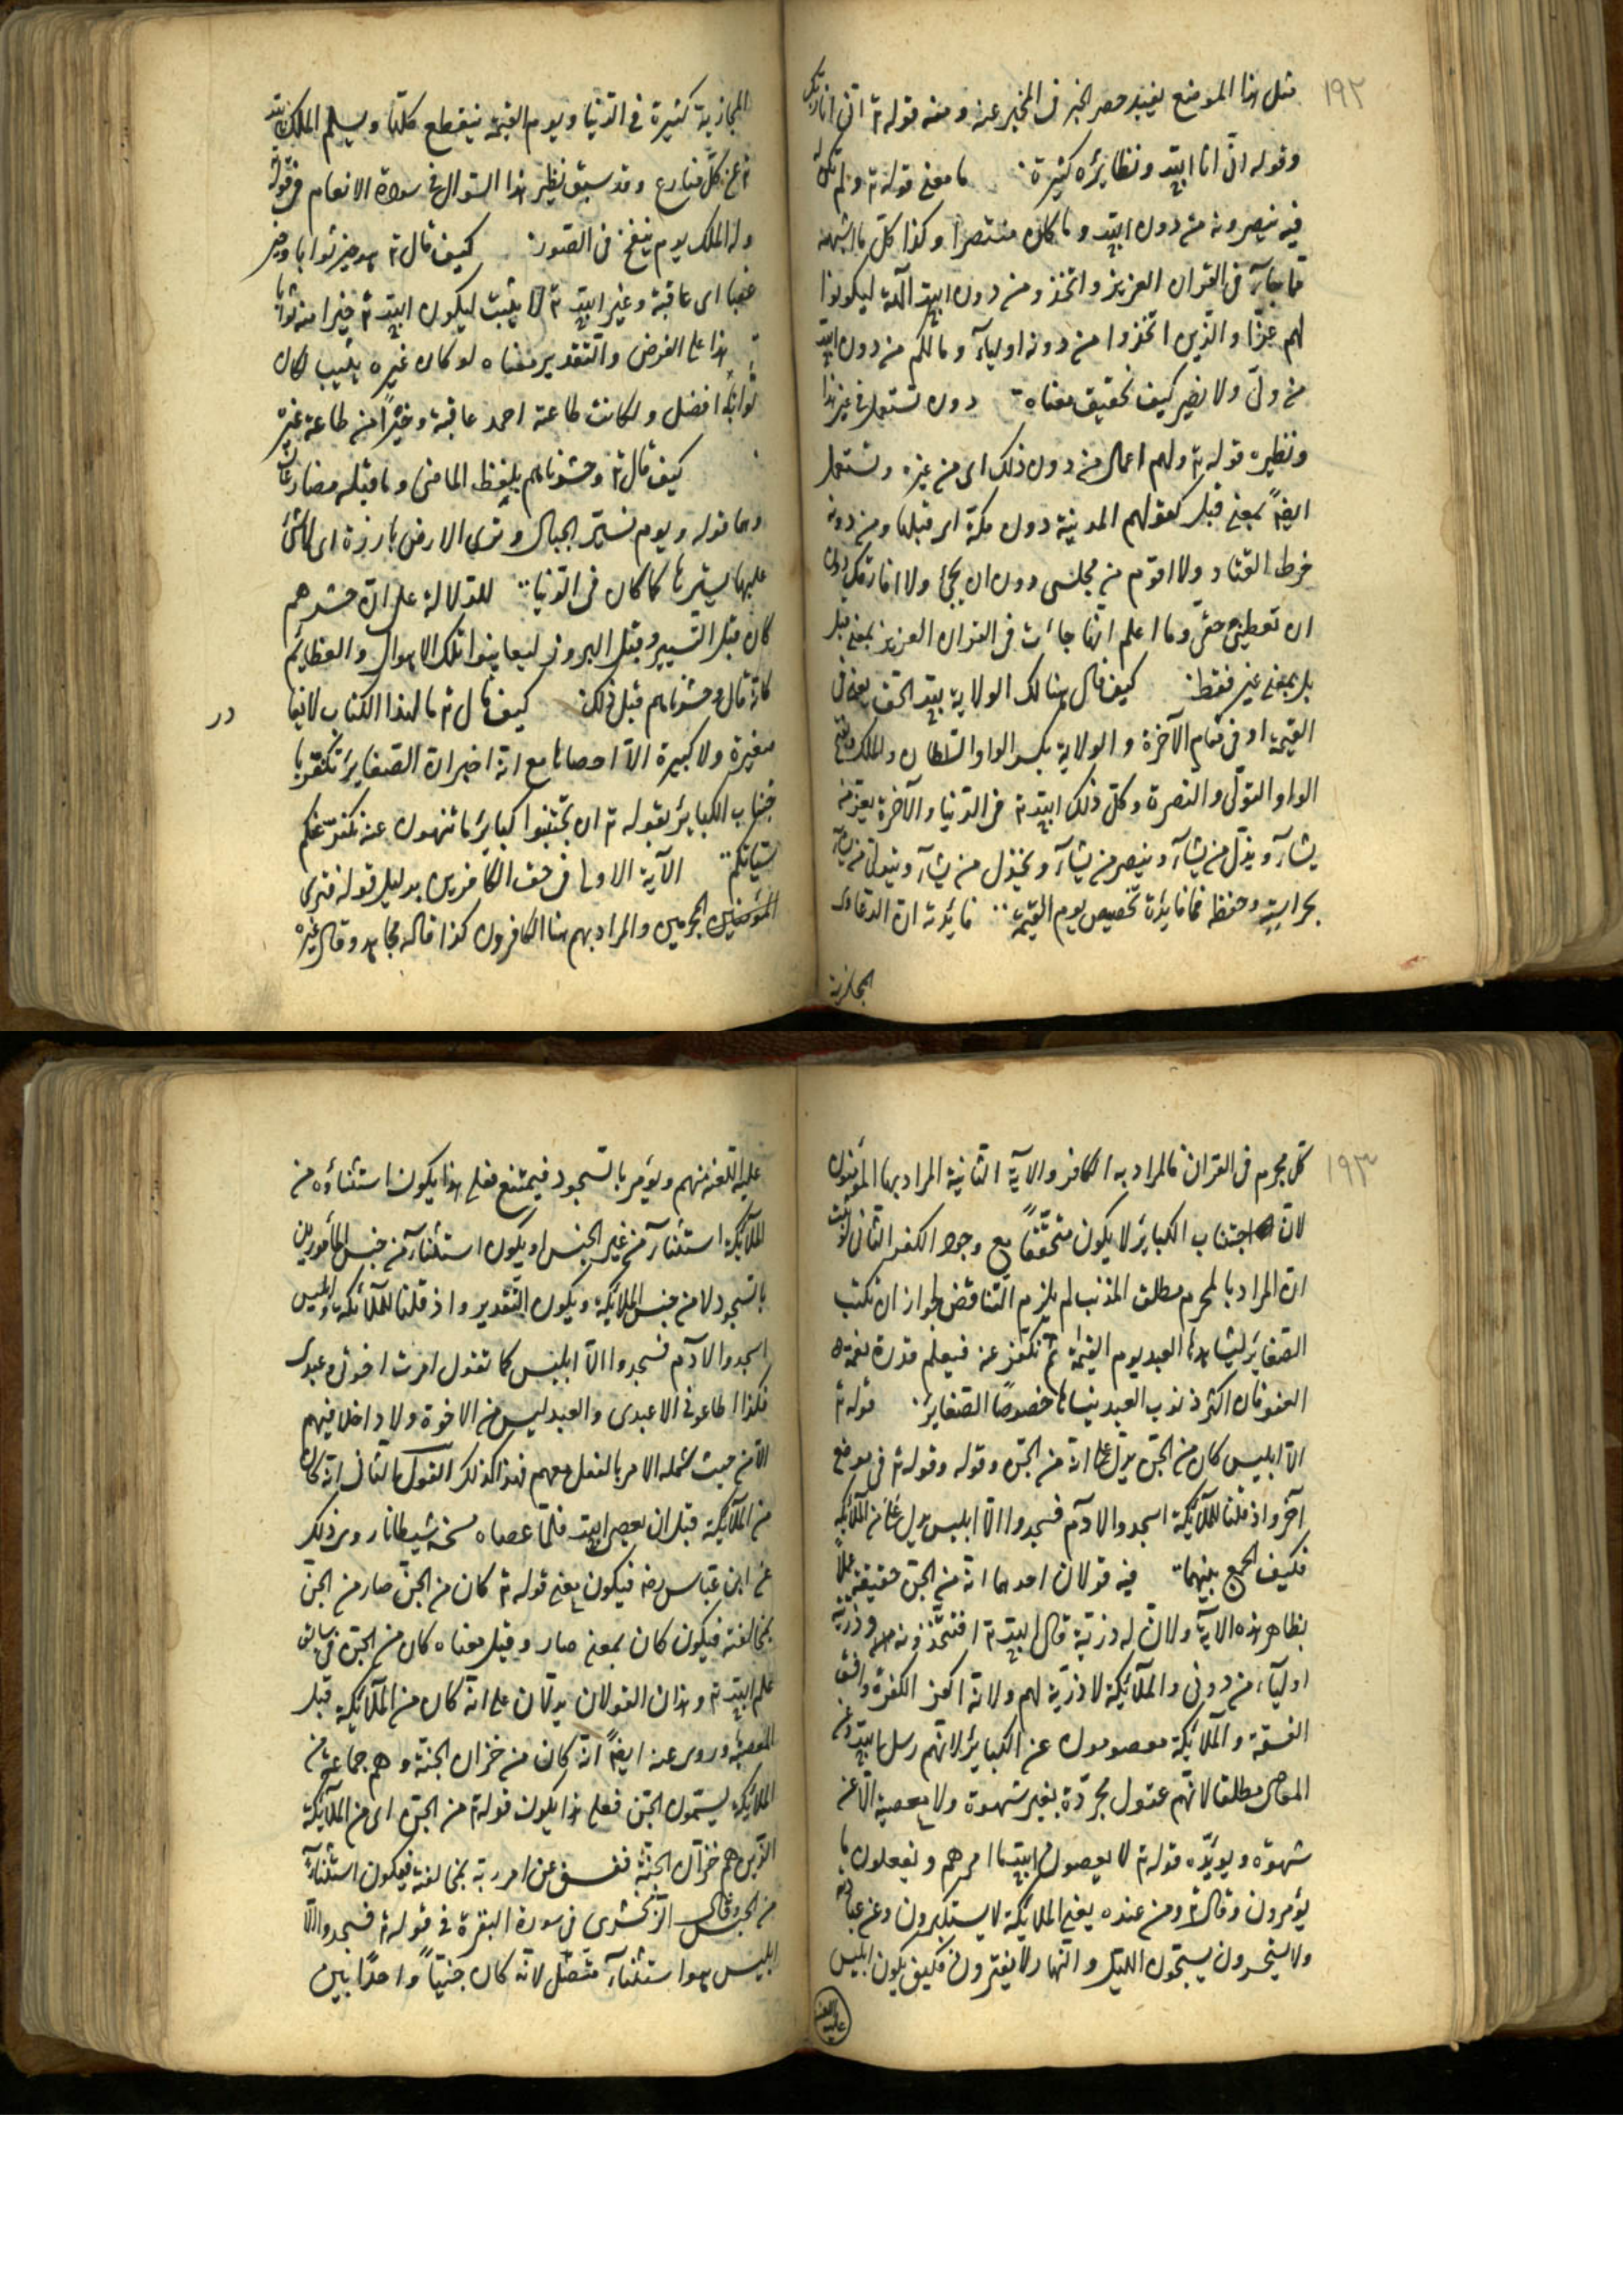 ١٩٢
مثل هذا الموضع يفيد حصر الخبر فى المخبر عنه ومنه قوله تع انى انا ربك
وقوله انى انا الله ونظائره كثيرة ما معنى قوله تع ولم تكن له
فيه ينصرونه من دون الله وما كان منتصرا وكذا كل ما اشبهه
مما جاء فى القران العزيز واتخذوا من دون الله آلهة ليكونوا
لهم عزّا والّذين اتخذوا من دونه اولياء وما لكم من دون الله
من ولىّ ولا نصير كيف تحقيق معناه دون تستعمل فى غير هذا
ونظيره قوله تع ولهم اعمال من دون ذلك اى من غيره وتستعمل
ايضاً بمعنى قبل كقولهم المدينة دون مكة اى قبلها ومن دونه
خرط القتاد ولا اقوم من مجلسى دون ان تجئ ولا افارقك دون
ان تعطينى حقى وما اعلم انّها جاءت فى القران العزيز بمعنى قبل
بل بمعنى غير فقط كيف قال هنالك الولاية لله الحق يعنى فى
القيمة او فى مقام الآخرة والولاية بكسر الواو السلطان والملك وبفتح
الواو التولّى والنصرة وكلّ ذلك لله تع فى الدّنيا والآخرة يعز من
يشآء ويذلّ من يشآء وينصر من يشآء ويخذل من يشآء ويتولى من يشآء
بحراسته وحفظه فما فائدة تخصيص يوم القيمة فائدته ان الدعاوى
المجازية
المجازية كثيرة فى الدّنيا ويوم القيمة ينقطع كلّها ويسلم الملك لله
تع عن كلّ منازع وقد سبق نظير هذا السؤال فى سورة الانعام فى قوله
وله الملك يوم ينفخ فى الصّور كيف قال تع هو خير ثوابا وخير
عقبا اى عاقبة وغير الله تع لا يثيب ليكون الله تع خيرا منه ثوابا
هذا على الفرض والتّقدير معناه لو كان غيره يثيب لكان
ثوابه افضل ولكانت طاعته احمد عاقبة وخيراً من طاعة غيره
كيف قال تع وحشرناهم بلفظ الماضى وما قبله مضارعان
وهما قوله ويوم نسيّر الجبال وترى الارض بارزة اى لا شئ
عليها يسترها كما كان فى الدّنيا للدّلالة على انّ حشرهم
كان قبل التّسيير وقبل البروز ليعاينوا تلك الاهوال والعظائم
كانه قال وحشرناهم قبل ذلك كيف قال تع ما لهذا الكتاب لا يغا
در
صغيرة ولا كبيرة الّا احصاها مع انّه اخبر ان الصّغاير تكفّر با
جتناب الكبائر بقوله تع ان تجتنبوا كبائر ما تنهون عنه نكفّر عنكم
سيّئاتكم الآية الاولى فى حق الكافرين بدليل قوله فترى
المجرمين والمراد بهم هنا الكافرون كذا قاله مجاهد وقال غيره
١٩٣
كلّ مجرم فى القران فالمراد به الكافر والآية الثانية المراد بها المؤمنون
لانّ اجتناب الكبائر لا يكون متحققاً مع وجود الكفر الثانى لو ثبت
انّ المراد بالمجرم مطلق المذنب لم يلزم التّناقض لجواز ان تكتب
الصّغاير ليشاهدها العبد يوم القيمة ثم تكفر عنه فيعلم قدرة نعمة
العفو فان اكثر ذنوب العبد ينساها خصوصًا الصّغاير قوله تع
الّا ابليس كان من الجنّ يدلّ على انّه من الجنّ وقوله وقوله تع فى موضع
آخر واذ قلنا للملآئكة اسجدوا لآدم فسجدوا الّا ابليس يدل على انه من الملآئكة
فكيف الجمع بينهما فيه قولان احدهما انّه من الجنّ حقيقة عملاً
بظاهر هذه الآية ولانّ له ذرّيّة قال الله تع افتتّخذونه وذرّيّته
اوليآء من دونى والملآئكة لا ذرّيّة لهم ولانّه اكفر الكفرة وافسق
الفسقة والملآئكة معصومون عن الكبائر لانّهم رسل الله وعن
المعاصى مطلقا لانّهم عقول مجرّدة بغير شهوة ولا معصية الّا عن
شهوة ويؤيّده قوله تع لا يعصون الله ما امرهم ويفعلون ما
يؤمرون وقال تع ومن عنده يعنى الملآئكة لا يستكبرون عن عبادته
ولا يستحسرون يسبّحون الليل والنّهار لا يفترون فكيف يكون ابليس
عليه اللعنة منهم ويؤمر بالسّجود فيمتنع فعلى هذا يكون استثناؤه من
الملآئكة استثنآء من غير الجنس او يكون استثنآء من جنس المأمورين
بالسّجود لا من جنس الملآئكة ويكون التّقدير واذ قلنا للملآئكة وابليس
اسجدوا لآدم فسجدوا الّا ابليس كما تقول امرت اخوتى وعبدى
فاطاعونى الا عبدى والعبد ليس من الاخوة ولا داخلا فيهم
الّا من حيث شمله الامر بالفعل معهم فهذا كذلك القول الثانى انّه كان
من الملآئكة قبل ان يعصى الله فلمّا عصاه مسخه شيطانا روى ذلك
عن ابن عبّاس رضه فيكون معنى قوله تع كان من الجنّ صار من الجنّ
بمخالفته فيكون كان بمعنى صار وقيل معناه كان من الجنّ فى سابق
علم الله تع وهذان القولان يدلّان على انّه كان من الملآئكة قبل
المعصية وروى عنه ايضاً انّه كان من خزان الجنّة وهم جماعة من
الملآئكة يسمّون الجنّ فعلى هذا يكون قوله تع من الجنّ اى من الملآئكة
الّذين هم خزّان الجنّة ففسق عن امر ربّه بمخالفته فيكون استثنآء
من الجنس وقال الزّمخشرى فى سورة البقرة فى قوله تع فسجدوا الّا
ابليس هو استثنآء متّصل لانّه كان جنّيّاً واحدًا بين